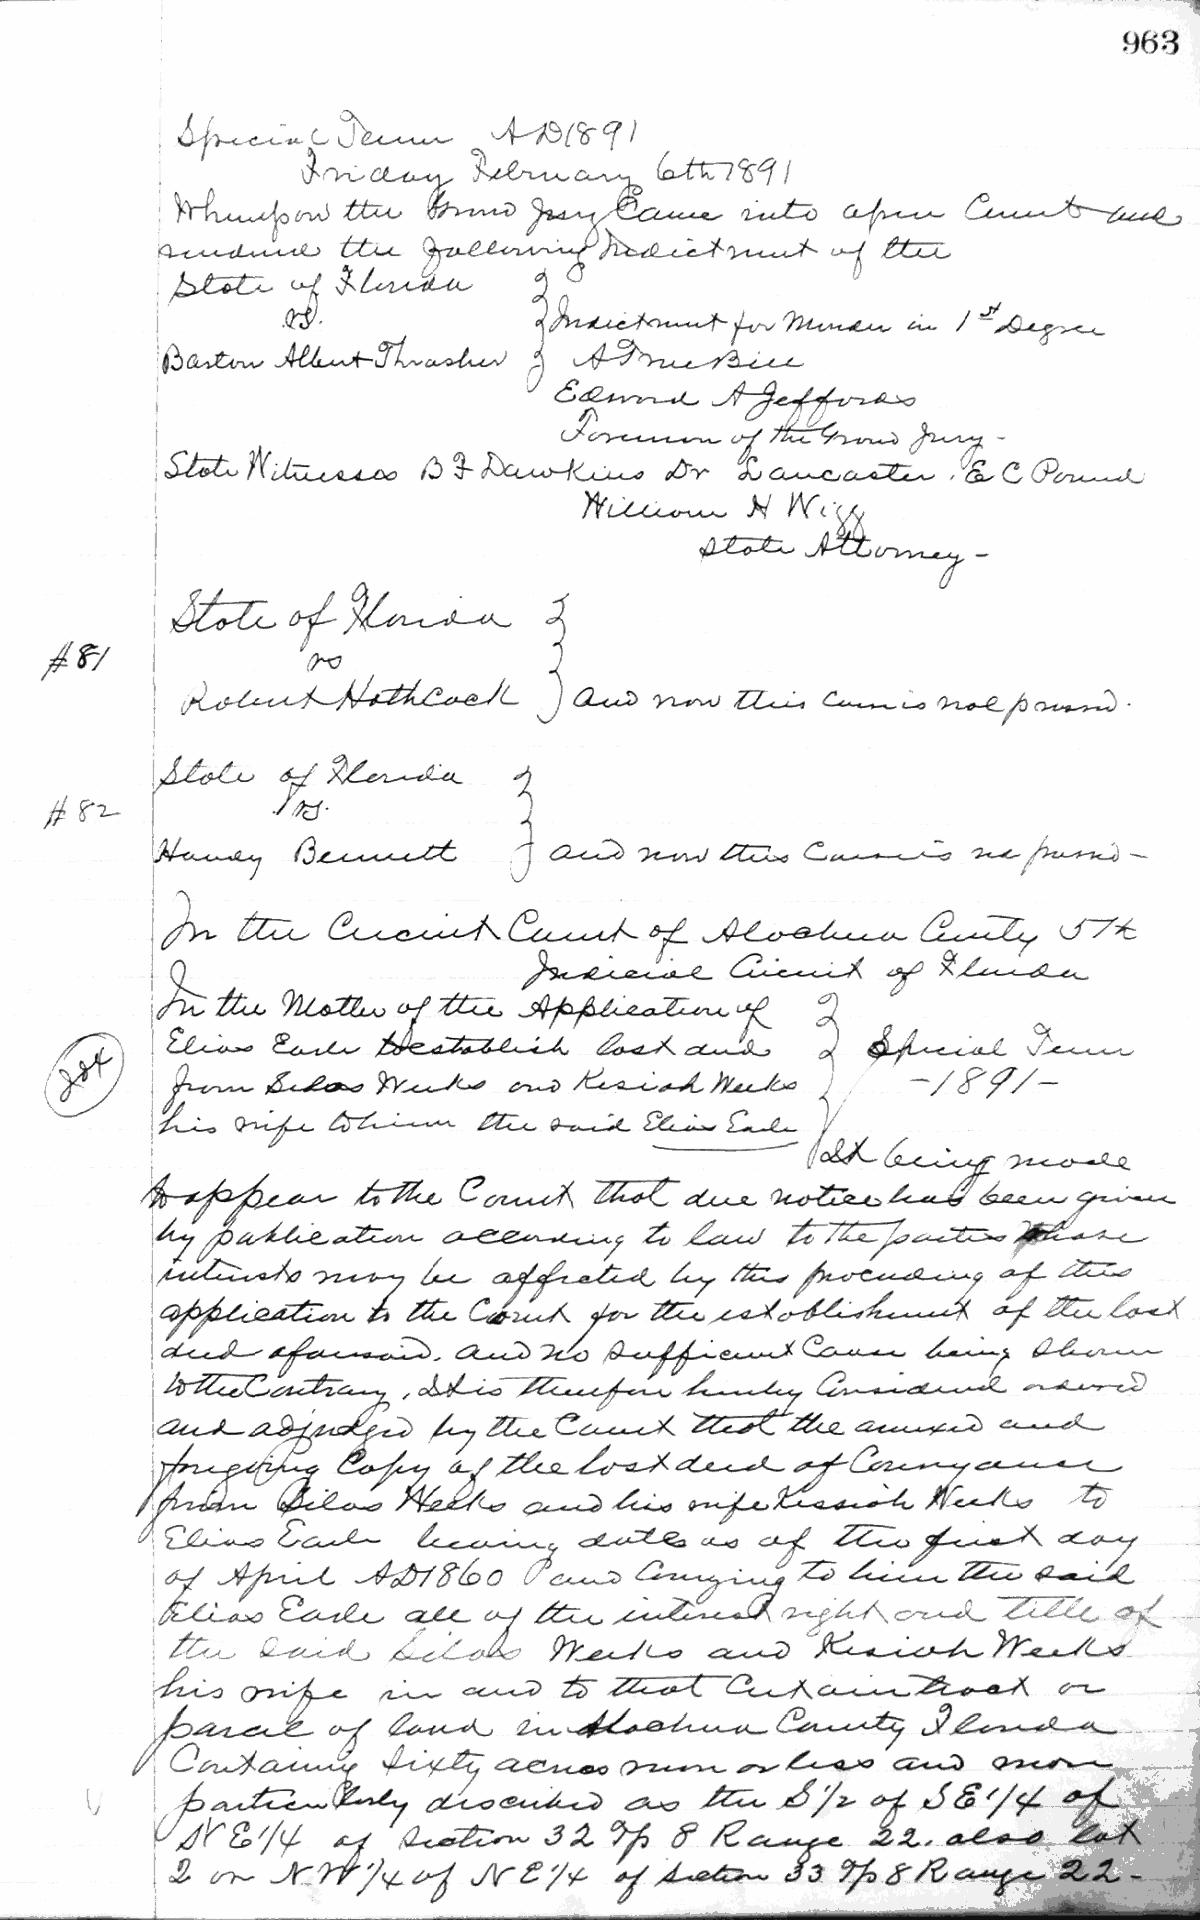 963
Special Term AD 1891
Friday February 6th 1891
Whereupon the Grand Jury Came into open Court and
rendered the following Indictment of the
State of Florida
vs.
Indictment for Murder in 1st Degree
Barton Albert Thrasher
A True Bill
Edward A Jeffords
Foreman of the Grand Jury -
State Witnesses B F Dawkins Dr Lancaster . E C Pound
William H Wigg
State Attorney -
State of Florida
#81
vs
Robert Hathcock
And now this Cause is nol prossed.
State of Florida
#82
vs.
Handy Bennett
And now this Cause is prossed -
In the Circuit Court of Alachua County 5th
Judicial Circuit of Florida
In the Matter of the Application of
Elias Earle to establish lost deed
Special Term
from Silas Weeks and Kesiah Weeks
-1891-
his wife to him the said Elias Earle
It being made
to appear to the Court that due notice has been given
by publication according to law to the parties whose
interests may be affected by this proceeding of this
application to the Court for the establishment of the lost
deed aforesaid. and no sufficient Cause being shown
to the Contrary, It is therefore hereby Considered ordered
and adjudged by the Court that the annexed and
foregoing Copy of the lost deed of Conveyance
from Silas Weeks and his wife Kessiah Weeks to
Elias Earle bearing date as of the first day
of April AD 1860 and Conveying to him the said
Elias Earle all of the interest right and title of
the said Silas Weeks and Kesiah Weeks
his wife in and to that Certain tract or
parcel of land in Alachua County Florida
Containing sixty acres more or less and more
particularly described as the S 1/2 of SE 1/4 of
NE 1/4 of Section 32 Tp 8 Range 22. also lot
2 or NW 1/4 of NE 1/4 of Section 33 Tp 8 Range 22 -